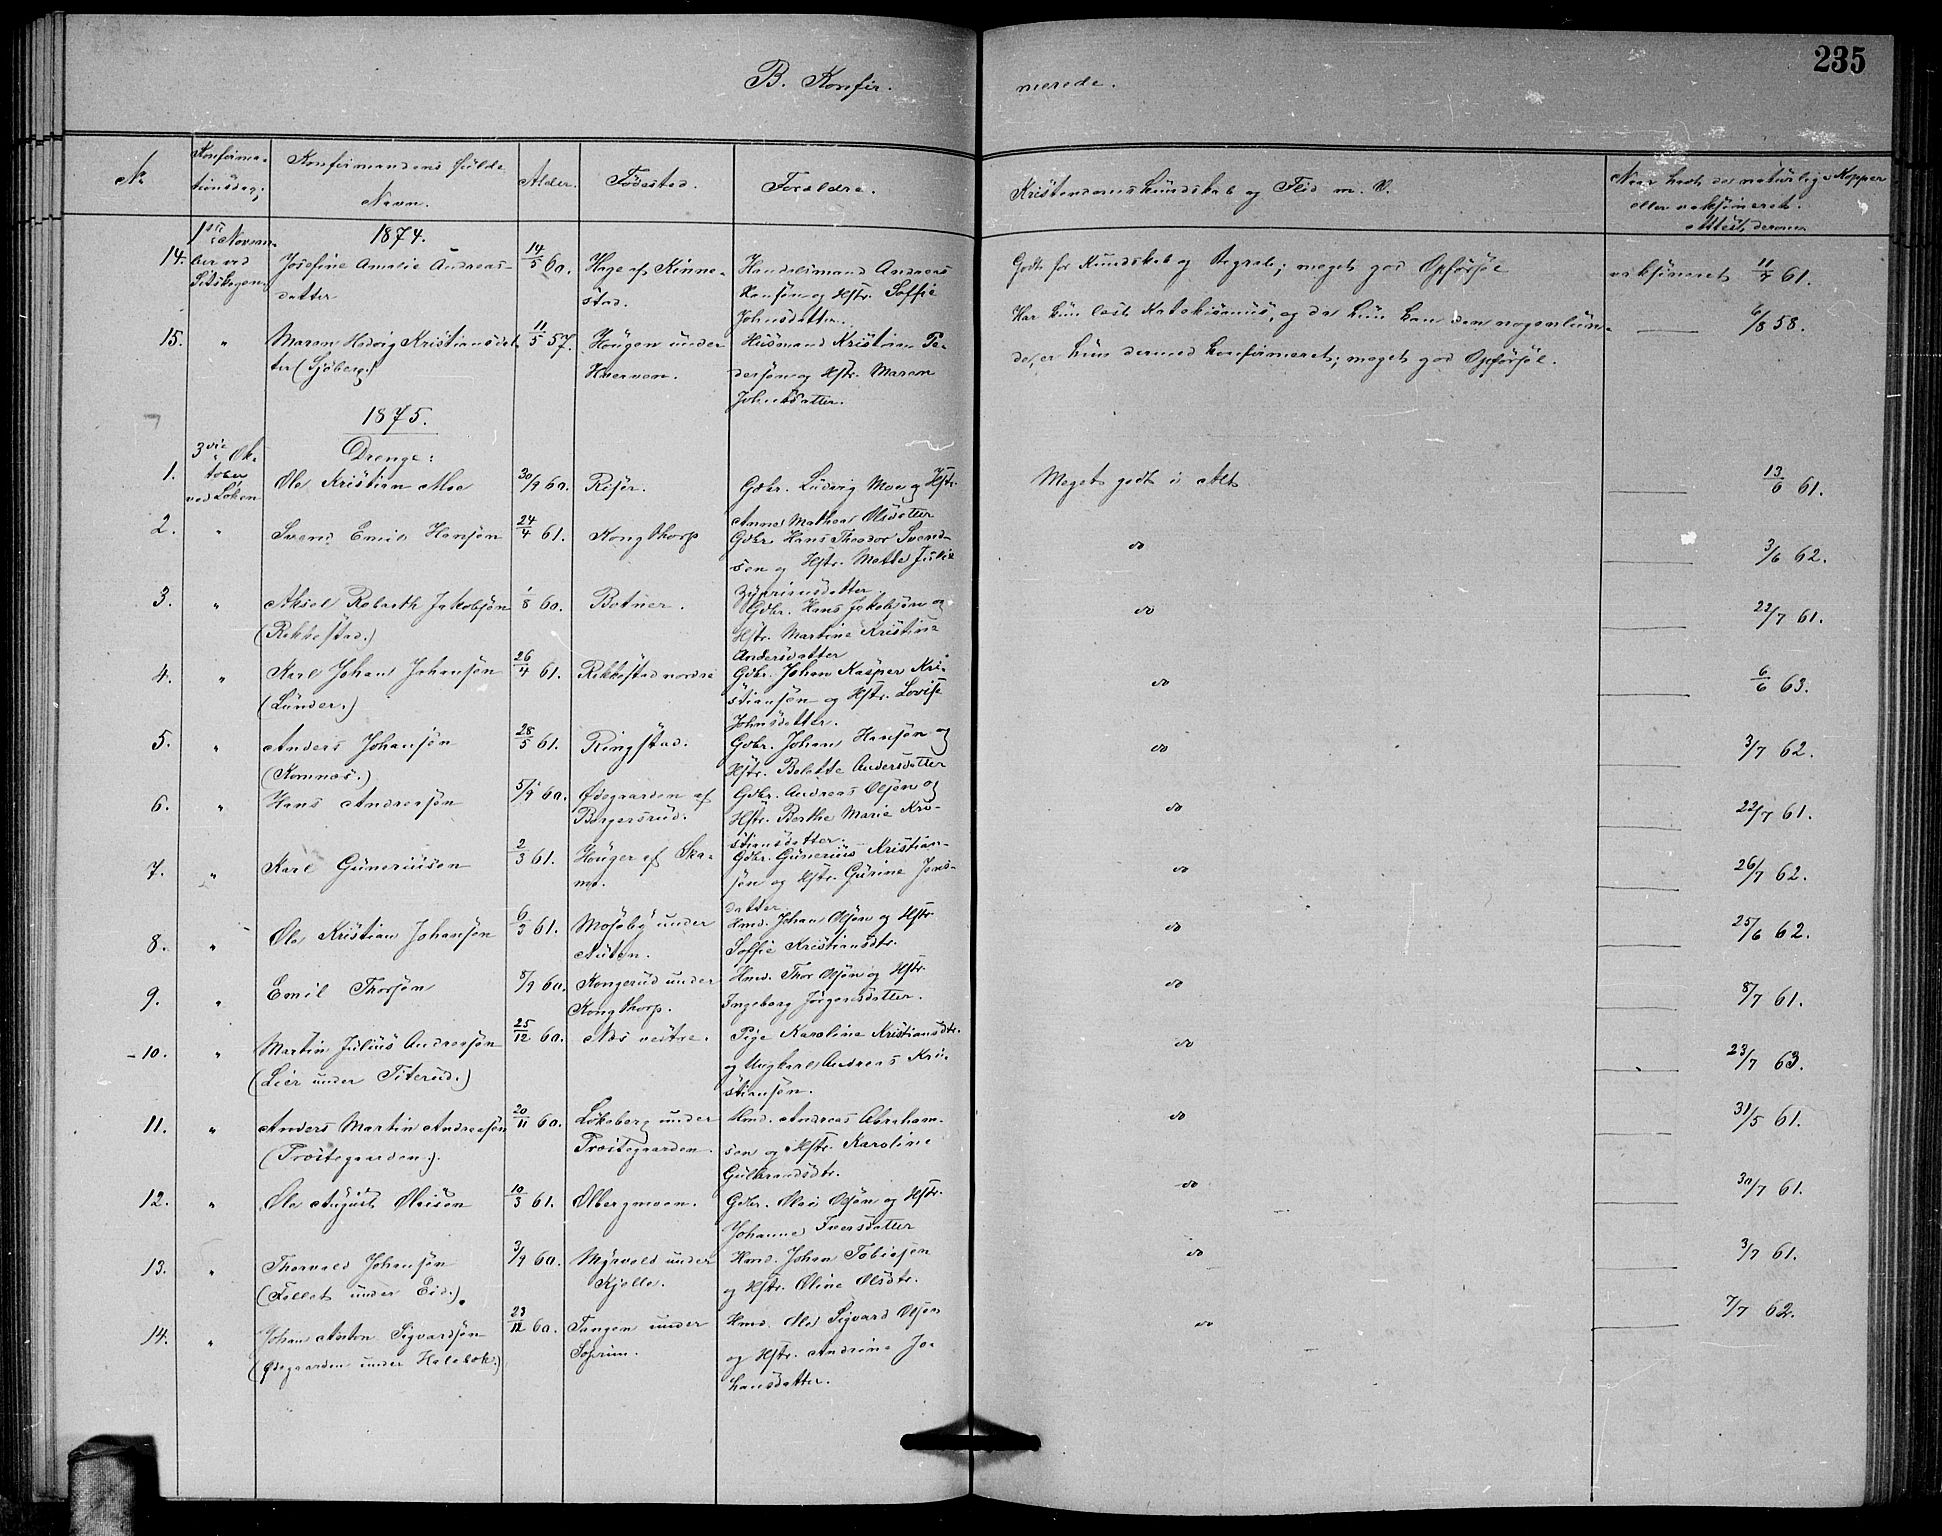 235
B. Konfir-
merede.
No
Konfirma-
tionsdag;
Konfirmandens fulde
Navn.
Alder.
Fødested.
Forældre.
Kristendomskundskab og Flid m. V.
Naar havt de naturlige Kopper
eller vaksineret.
Attest derom
1874.
14. 1ste Novem-
ber ved
Josefine Amalie Andreas-
datter
14/5 60.
Hage af Kinne-
stad.
Handelsmand Andreas
Hansøn og Hstr. Soffie
Johnsdatter.
Godt for Kundskab og meget god Opførsel
vaksineret 61.
15. "
Maren Hedvig Kristiansdat-
ter (Sjøberg)
11/5 57.
Haugen under
Husmand Kristian Pe-
dersøn og Hstr. Maren
Johnsdatter.
Har kun læst Katekismus, og da hun kan den nogenlun-
de, er hun dermed konfirmeret; meget god Opførsel.
6/8 58.
1875.
Drenge:
1. 3die Ok-
tober
ved Løken
Ole Kristian Moe
30/9 60.
Risør.
Gdbr. Ludvig Moe og Hstr.
Anne Mathea Olsdatter
Meget godt i Alt
13/6 61.
2. "
Svend Emil Hansøn
24/4 61.
Kongthorp
Gdbr. Hans Theodor Svend-
sen og Hstr. Mette Julie
do
3/6 62.
3. "
Aksel Robarth Jakobsøn
(Rikkestad.)
1/8 60.
Botner.
Gdbr. Hans Jakobsøn og
Hstr. Martine Kristine
Andersdatter
do
22/7 61.
4. "
Karl Johan Johansøn
(Lunder.)
26/4 61.
Rikkestad nordre
Gdbr. Johan Kasper Kri-
stiansøn og Hstr. Lovise
Johnsdatter.
do
6/6 63.
5. "
Anders Johansøn
(Komnæs.)
28/5 61.
Ringstad.
Gdbr. Johan Hansøn og
Hstr. Bolette Andersdatter
do
3/7 62.
6. "
Hans Andreasøn
5/9 60.
Ødegaarden af
Børgersrud.
Gdbr. Andreas Olsøn og
Hstr. Berthe Marie Kri-
stiansdatter.
do
22/7 61.
7. "
Karl Guneriusøn
2/3 61.
Houger af Ska-
Gdbr. Gunerius Kristian-
søn og Hstr. Gurine Jons-
datter
do
26/7 62.
8. "
Ole Kristian Johansøn
6/3 61.
Mosøby under
Auten.
Hmd. Johan Olsøn og Hstr.
Soffie Kristiansdtr.
do
25/6 62.
9. "
Emil Thorsøn
8/9 60.
Kongerud under
Kongthorp.
Hmd. Thor Olsøn og Hstr.
Ingeborg Jørgensdatter.
do
8/7 61.
10. "
Martin Julius Andreasøn
(Lier under Titerud.)
25/12 60.
Næs vestre.
Pige Karoline Kristiansdtr.
og Ungkarl Andreas Kri-
stiansøn.
do
23/7 63.
11. "
Anders Martin Andreasøn
(Præstegaarden.)
20/11 60.
Løkeberg under
Præstegaarden.
Hmd. Andreas Abraham-
sen og Hstr. Karoline
Gulbrandsdtr.
do
31/5 61.
12. "
Ole August Oleisøn
10/3 61.
Olbergmoen.
Gdbr. Olai Olsøn og Hstr.
Johanne Iversdatter
do
30/7 61.
13. "
Thorvald Johansøn
(Fallet under Eid.)
3/9 60.
Myrvold under
Kjelle.
Hmd. Johan Tobiesøn
og Hstr. Oline Olsdtr.
do
3/7 61.
14. "
Johan Anton Sigvardsøn
(Ødegaarden under Holebæk.)
23/12 60.
Tangen under
Soprim.
Hmd. Ole Sigvard Olsøn
og Hstr. Andrine Jo-
hansdatter.
do
7/7 62.